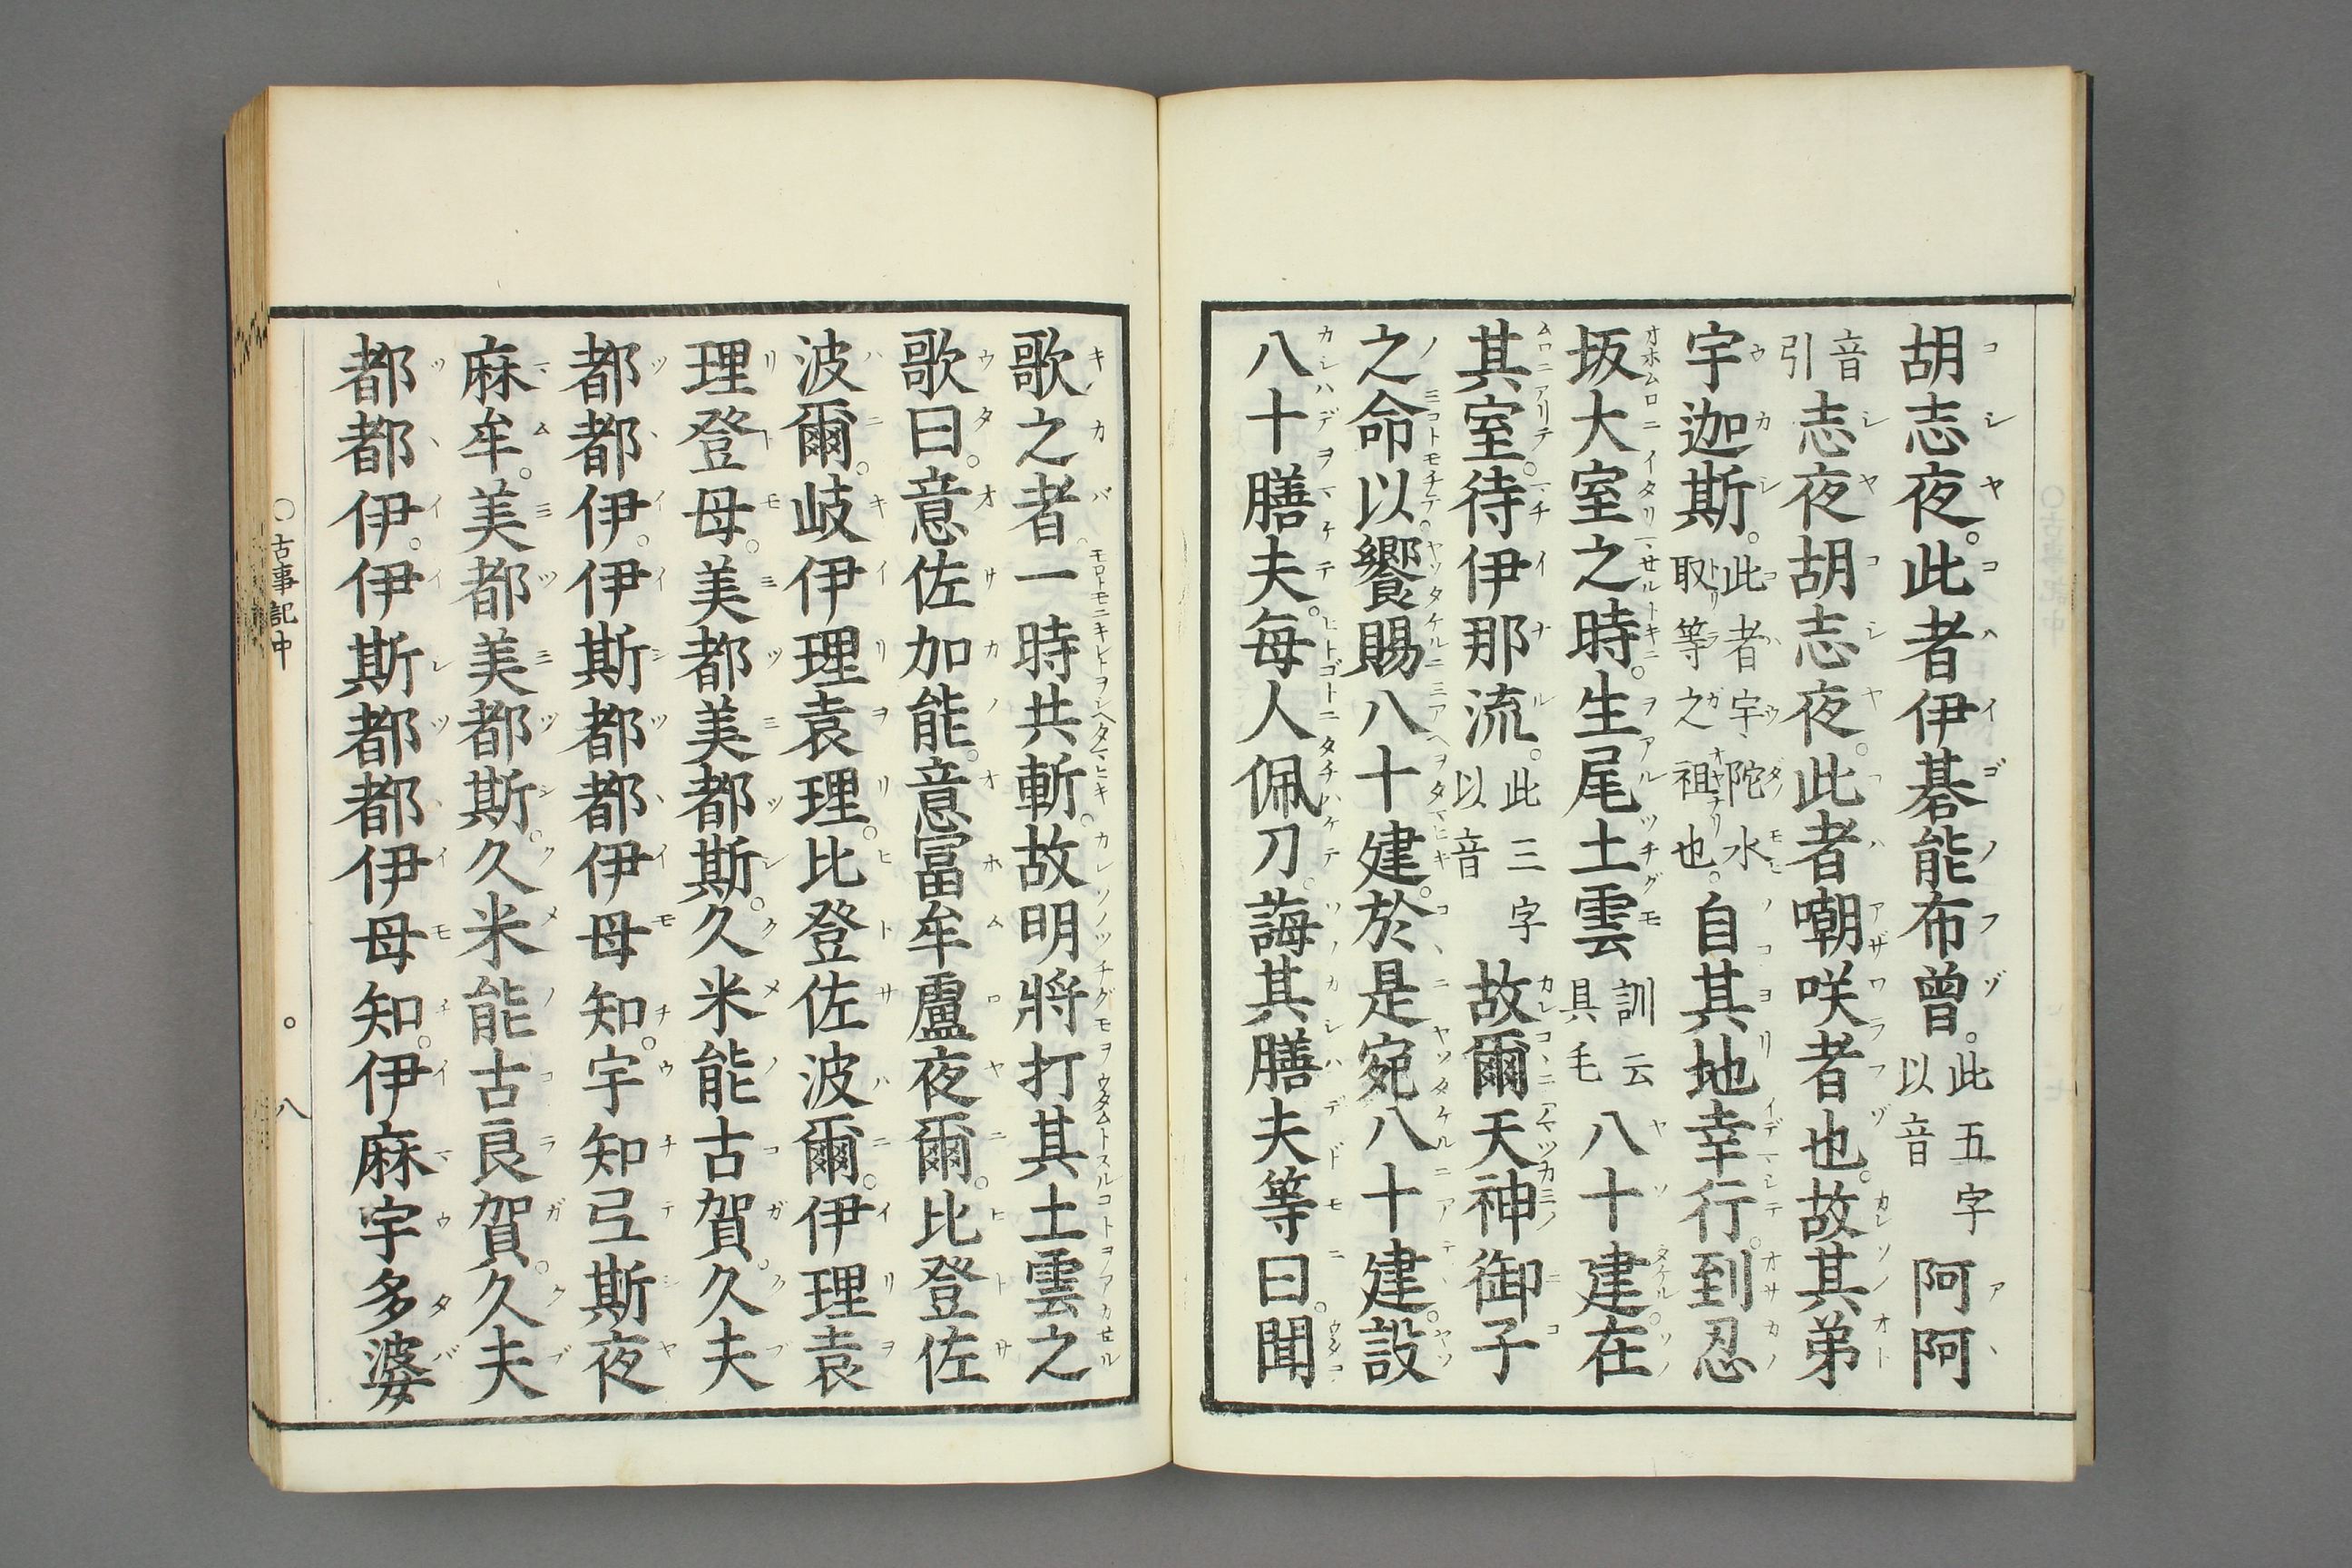 胡志夜。此者伊碁能布曾。此五字以音阿阿
音引志夜胡志夜。此者嘲咲者也。故其弟
宇迦斯。此者宇陀水取等之祖也。自其地幸行。到忍
坂大室之時。生尾土雲訓云具毛八十建。在
其室。待伊那流。此三字以音故爾天神御子
之命以。饗賜八十建。於是宛八十建。設
八十膳夫。毎人佩刀。誨其膳夫等曰。聞
歌之者。一時共斬。故明將打其土雲之
歌曰。意佐加能。意富牟盧夜爾。比登佐
波爾。岐伊理袁理。比登佐波爾。伊理袁
理登母。美都美都斯。久米能古賀。久夫
都都伊。伊斯都都伊母知。宇知弖斯夜
麻牟。美都美都斯。久米能古良賀。久夫
都都伊。伊斯都都伊母知。伊麻宇多婆
○古事記中
八